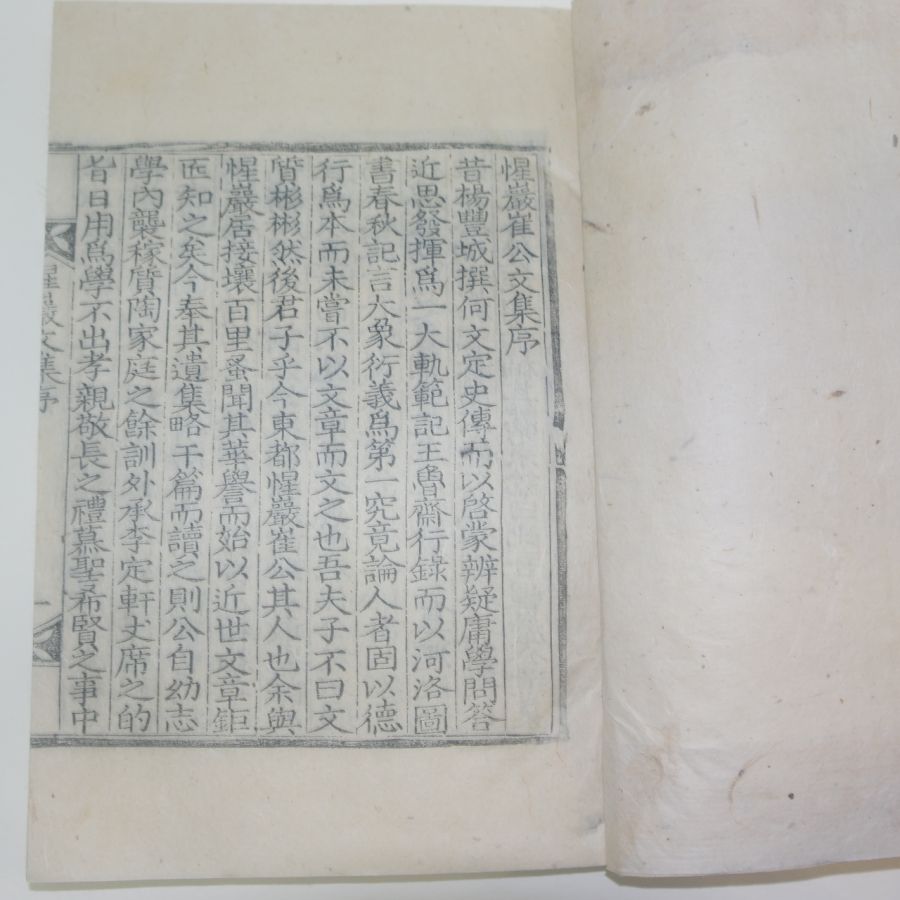 惺巖崔公文集序
昔楊豐城撰何文定史傳而以啓蒙辨疑庸學問答
近思發揮爲一大軌範記王魯齋行錄而以河洛圖
書春秋記言大象衍義爲第一究竟論人者固以德
行爲本而未嘗不以文章而文之也吾夫子不曰文
質彬彬然後君子乎今東都惺巖崔公其人也余與
惺巖居接壤百里蚤聞其華譽而始以近世文章鉅
匠知之矣今奉其遺集略干篇而讀之則公自幼志
學內襲稼質陶家庭之餘訓外承李定軒丈席之的
旨日用爲學不出孝親敬長之禮慕聖希賢之事中
惺巖文集序
一